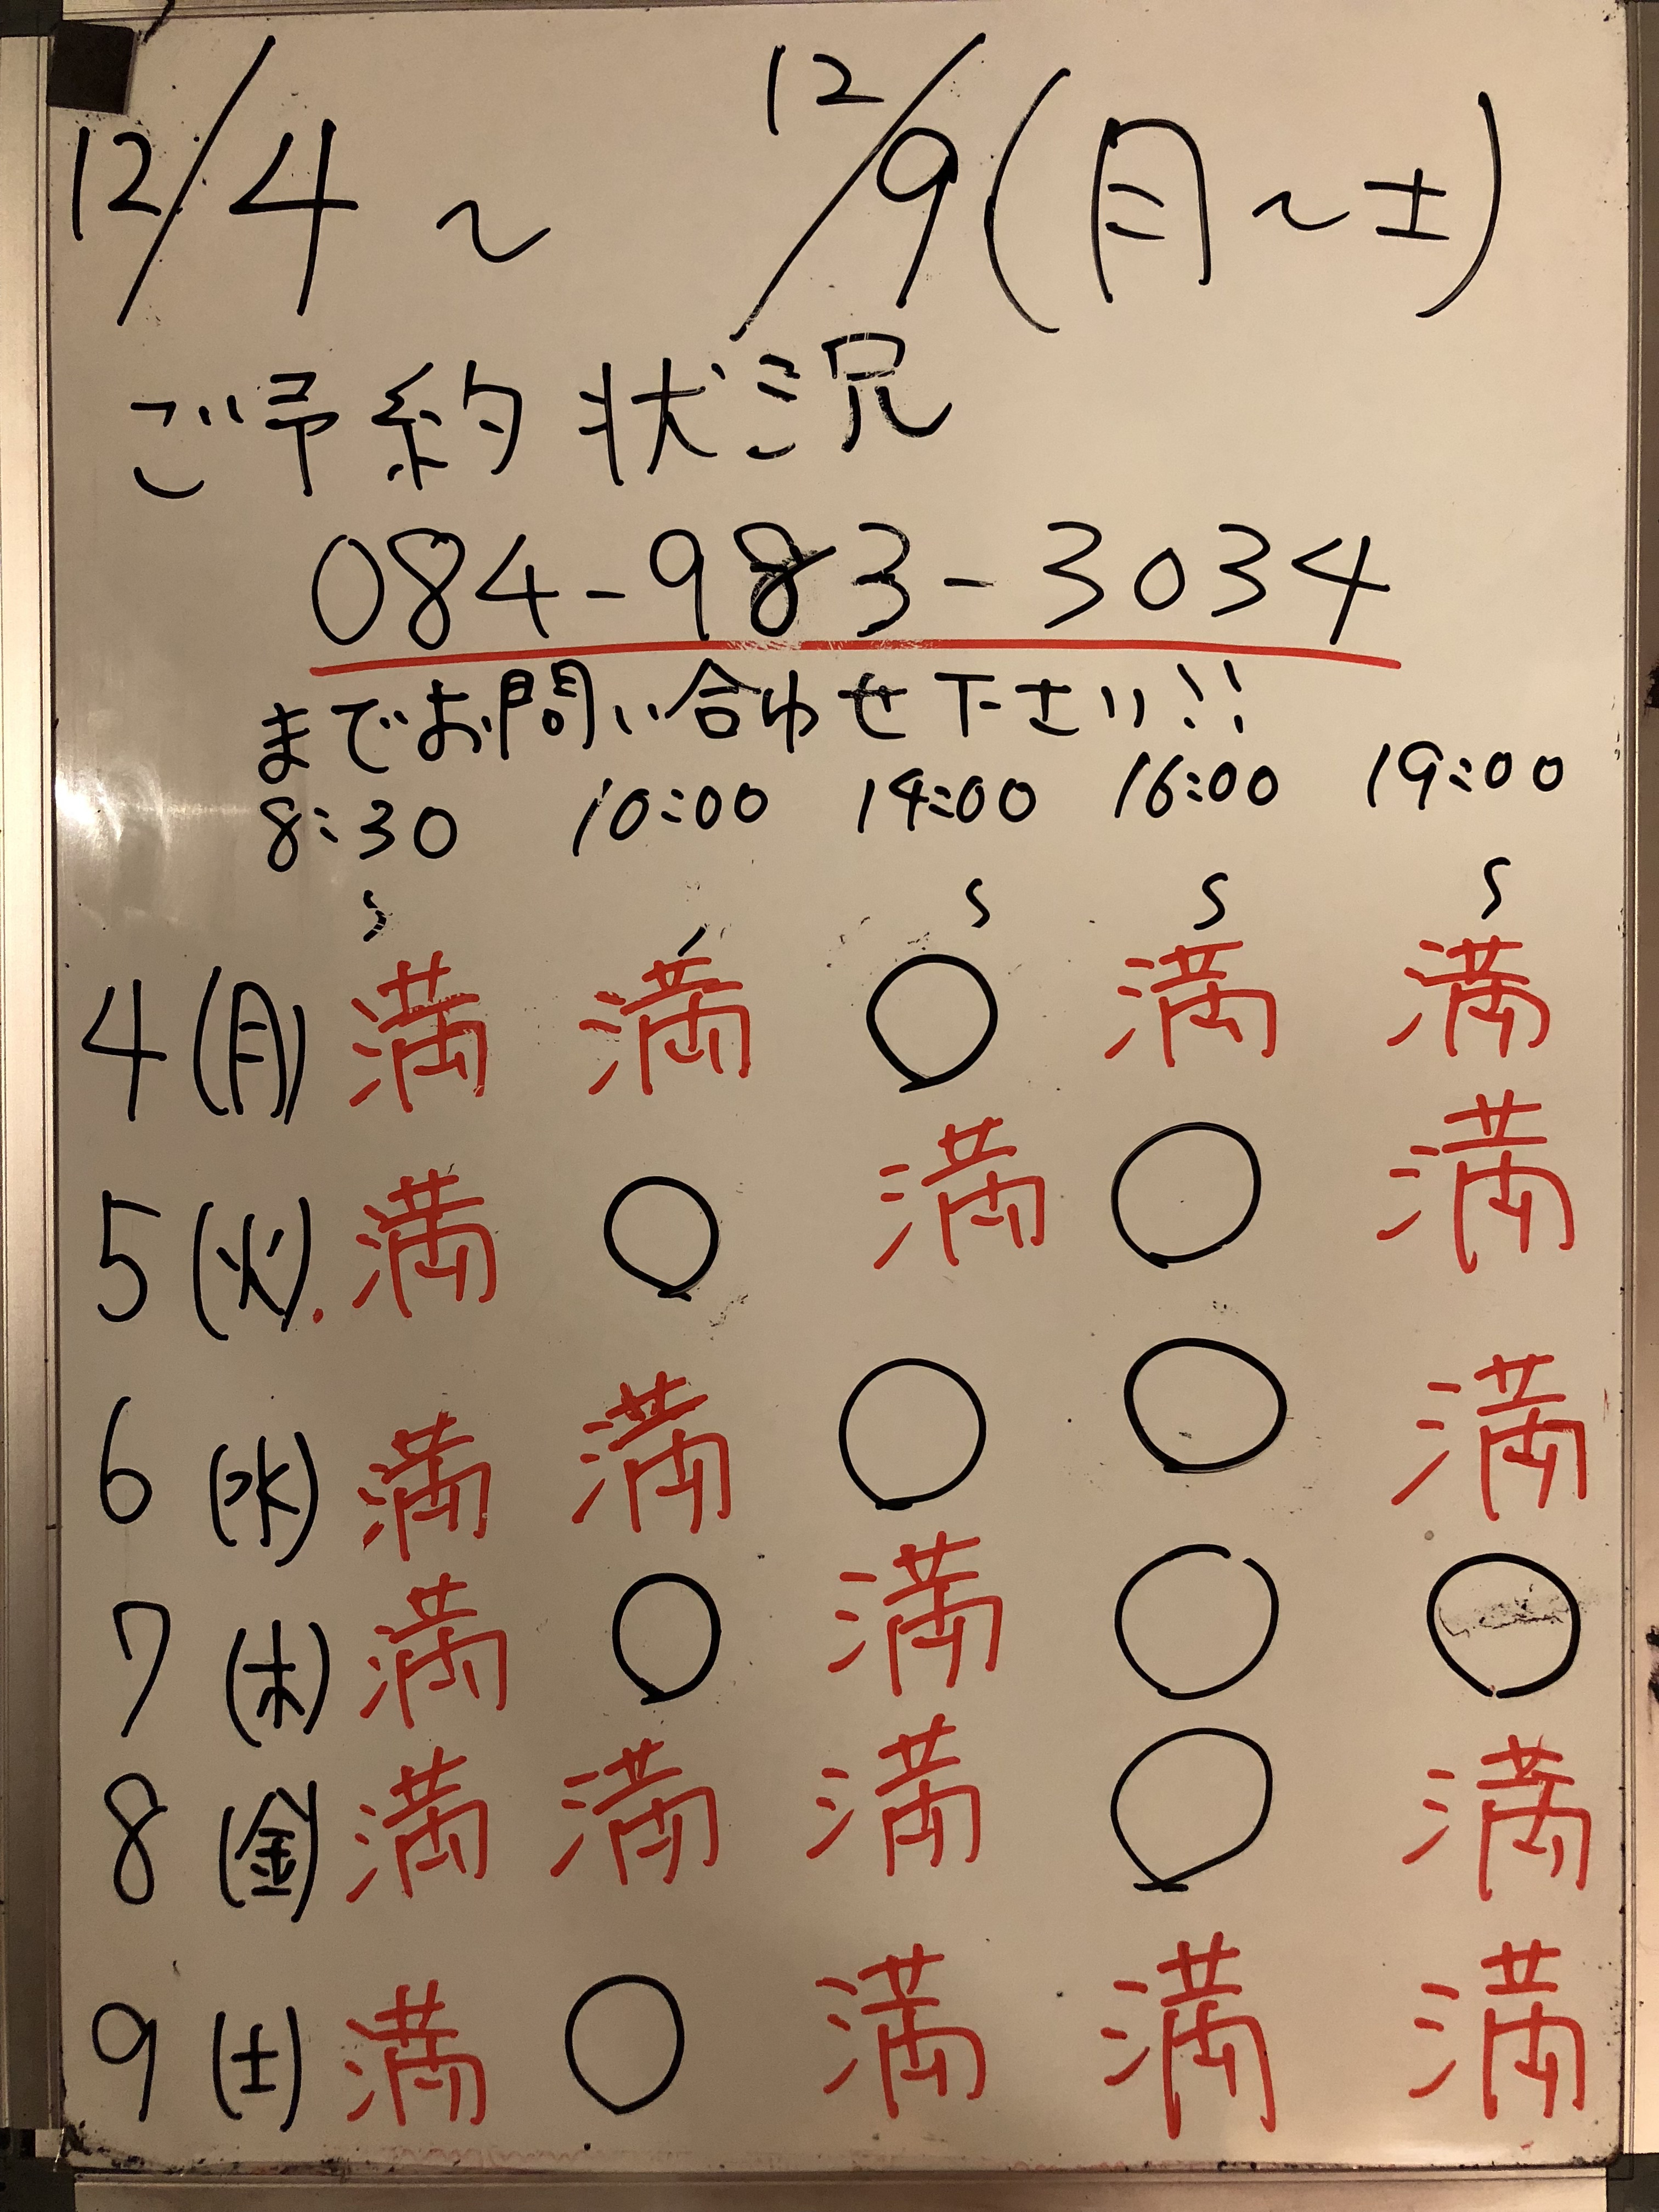 12/4 〜 12/9(月〜土)
ご予約状況
084-983-3034
までお問い合わせ下さい!!
8:30 10:00 14:00 16:00 19:00
〜 〜 〜 〜 〜
4(月) 満 満 ○ 満 満
5(火) 満 ○ 満 ○ 満
6(水) 満 満 ○ ○ 満
7(木) 満 ○ 満 ○ ○
8(金) 満 満 満 ○ 満
9(土) 満 ○ 満 満 満